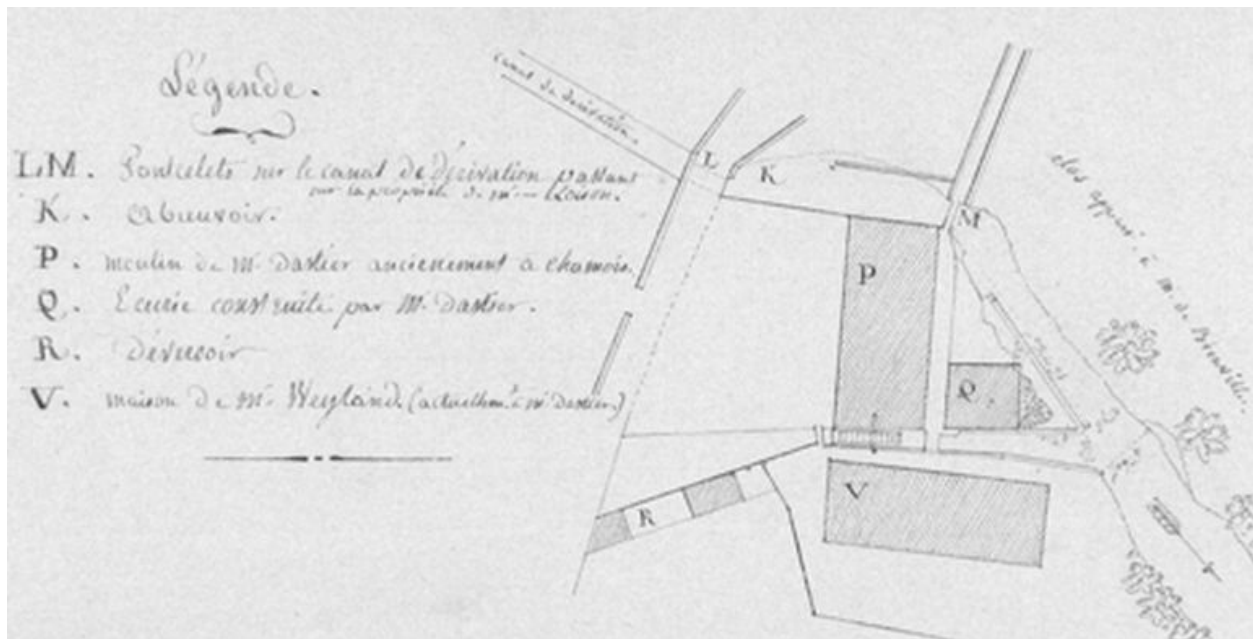 Légende.
LM. Pontcelets sur le canal de dérivation passant
sur la propriété de Mr Loison.
K. Abreuvoir.
P. moulin de Mr Dastier anciennement à chamois.
Q. Ecurie construite par Mr Dastier.
R. Déversoir
V. maison de Mr Weyland (actuellemt à Mr Dastier.)
Canal de dérivation.
L
K
M
clos appart. à M. de Bienville.
P
Q.
V
R